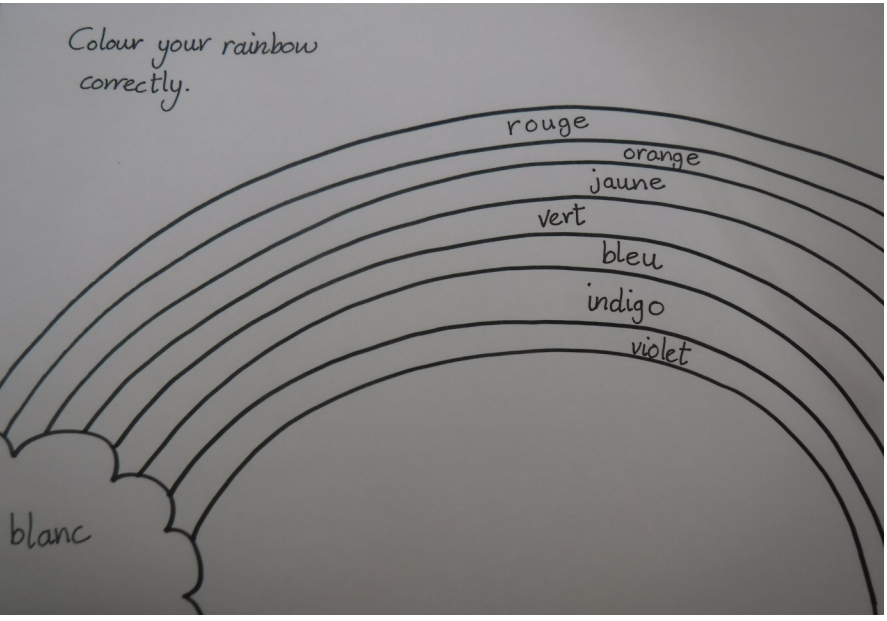 Colour your rainbow
correctly.
rouge
orange
jaune
vert
bleu
indigo
violet
blanc